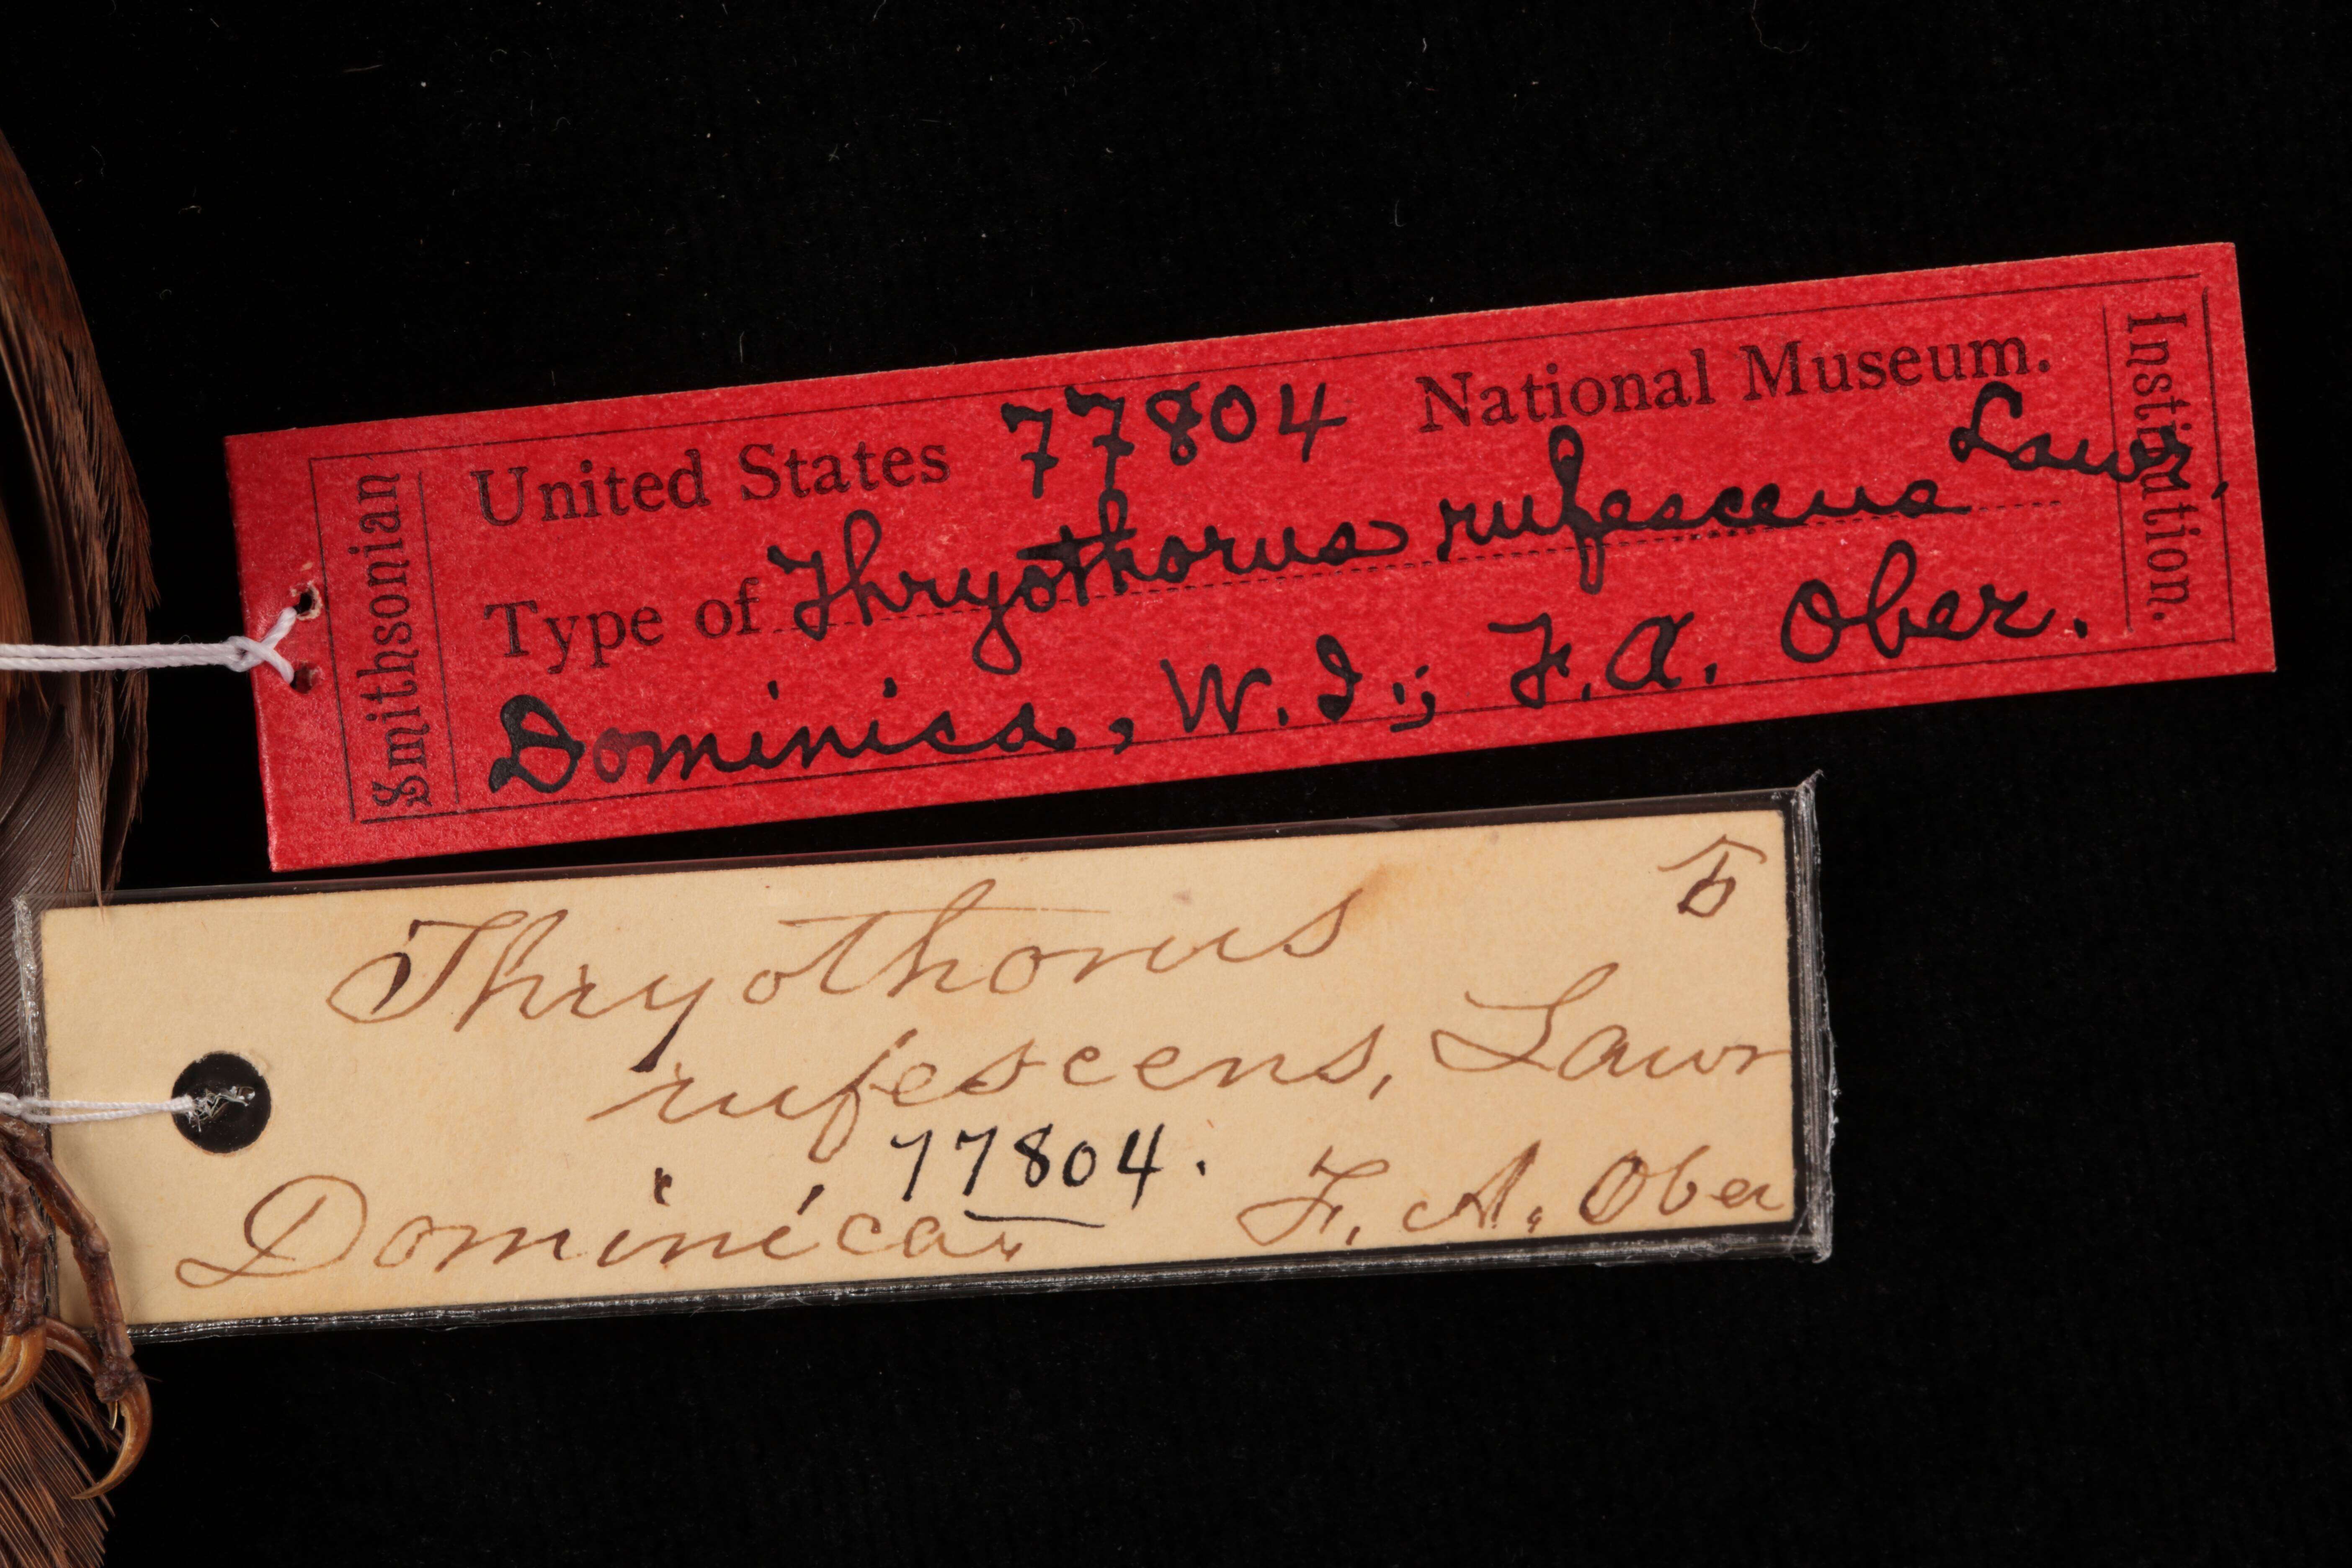 Smithsonian
United States 77804 National Museum.
Type of Thryothorus rufescens Lawr.
Dominica, W. I.; F. A. Ober.
Institution.
Thryothorus
rufescens, Lawr
77804.
Dominica. F. A. Ober